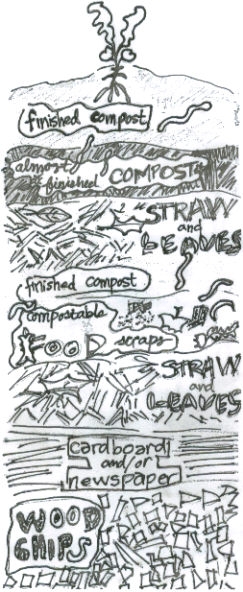 finished compost
almost finished COMPOST
STRAW
and
LEAVES
finished compost
compostable
FOOD scraps
STRAW
and
LEAVES
cardboard
and/or
newspaper
WOOD
CHIPS